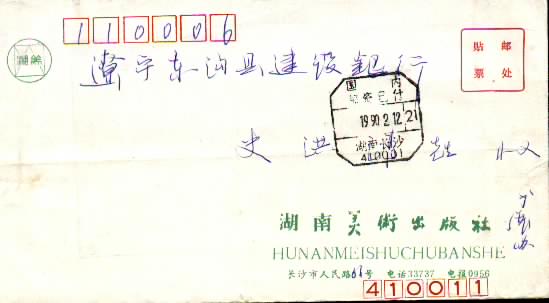 110006
贴邮
票处
辽宁东沟县建设银行
国内
邮资已付
1990.2.12.21
湖南长沙
410001
史洪 先生 收
湖南美術出版社
HUNANMEISHUCHUBANSHE
长沙市人民路68号 电话33737 电报0956
410011